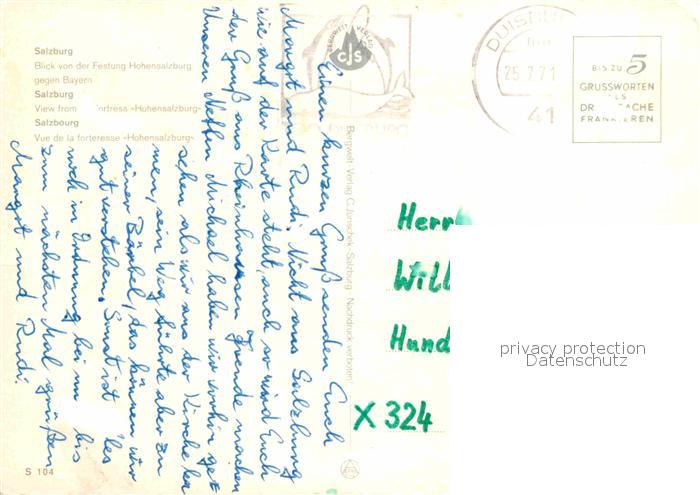 Salzburg
Blick von der Festung Hohensalzburg
gegen Bayern
Salzburg
View from fortress »Hohensalzburg«
Salzbourg
Vue de la forteresse »Hohensalzburg«
S 104
Einen kurzen Gruß senden Euch
Margot und Rudi. Nicht aus Salzburg
wie auf der Karte steht, auch so wird Euch
der Gruß aus Rheinhausen Freude machen
Unseren Neffen Michael haben wir vorhin ge-
sehen als wir aus der Kirche ka
men, sein Weg führte aber zu
seiner Bärbel, das können wir
gut verstehen. Sonst ist
noch in Ordnung bei uns bis
zum nächsten Mal grüßen
Margot und Rudi.
BERGWELT VERLAG
CJS
Bergwelt-Verlag C. Jurischek, Salzburg - Nachdruck verboten!
25.7.71
41
BIS ZU 5
GRUSSWORTEN
ALS
DR ACHE
FRANKIEREN
Herr
Will
Hund
X 324
privacy protection
Datenschutz